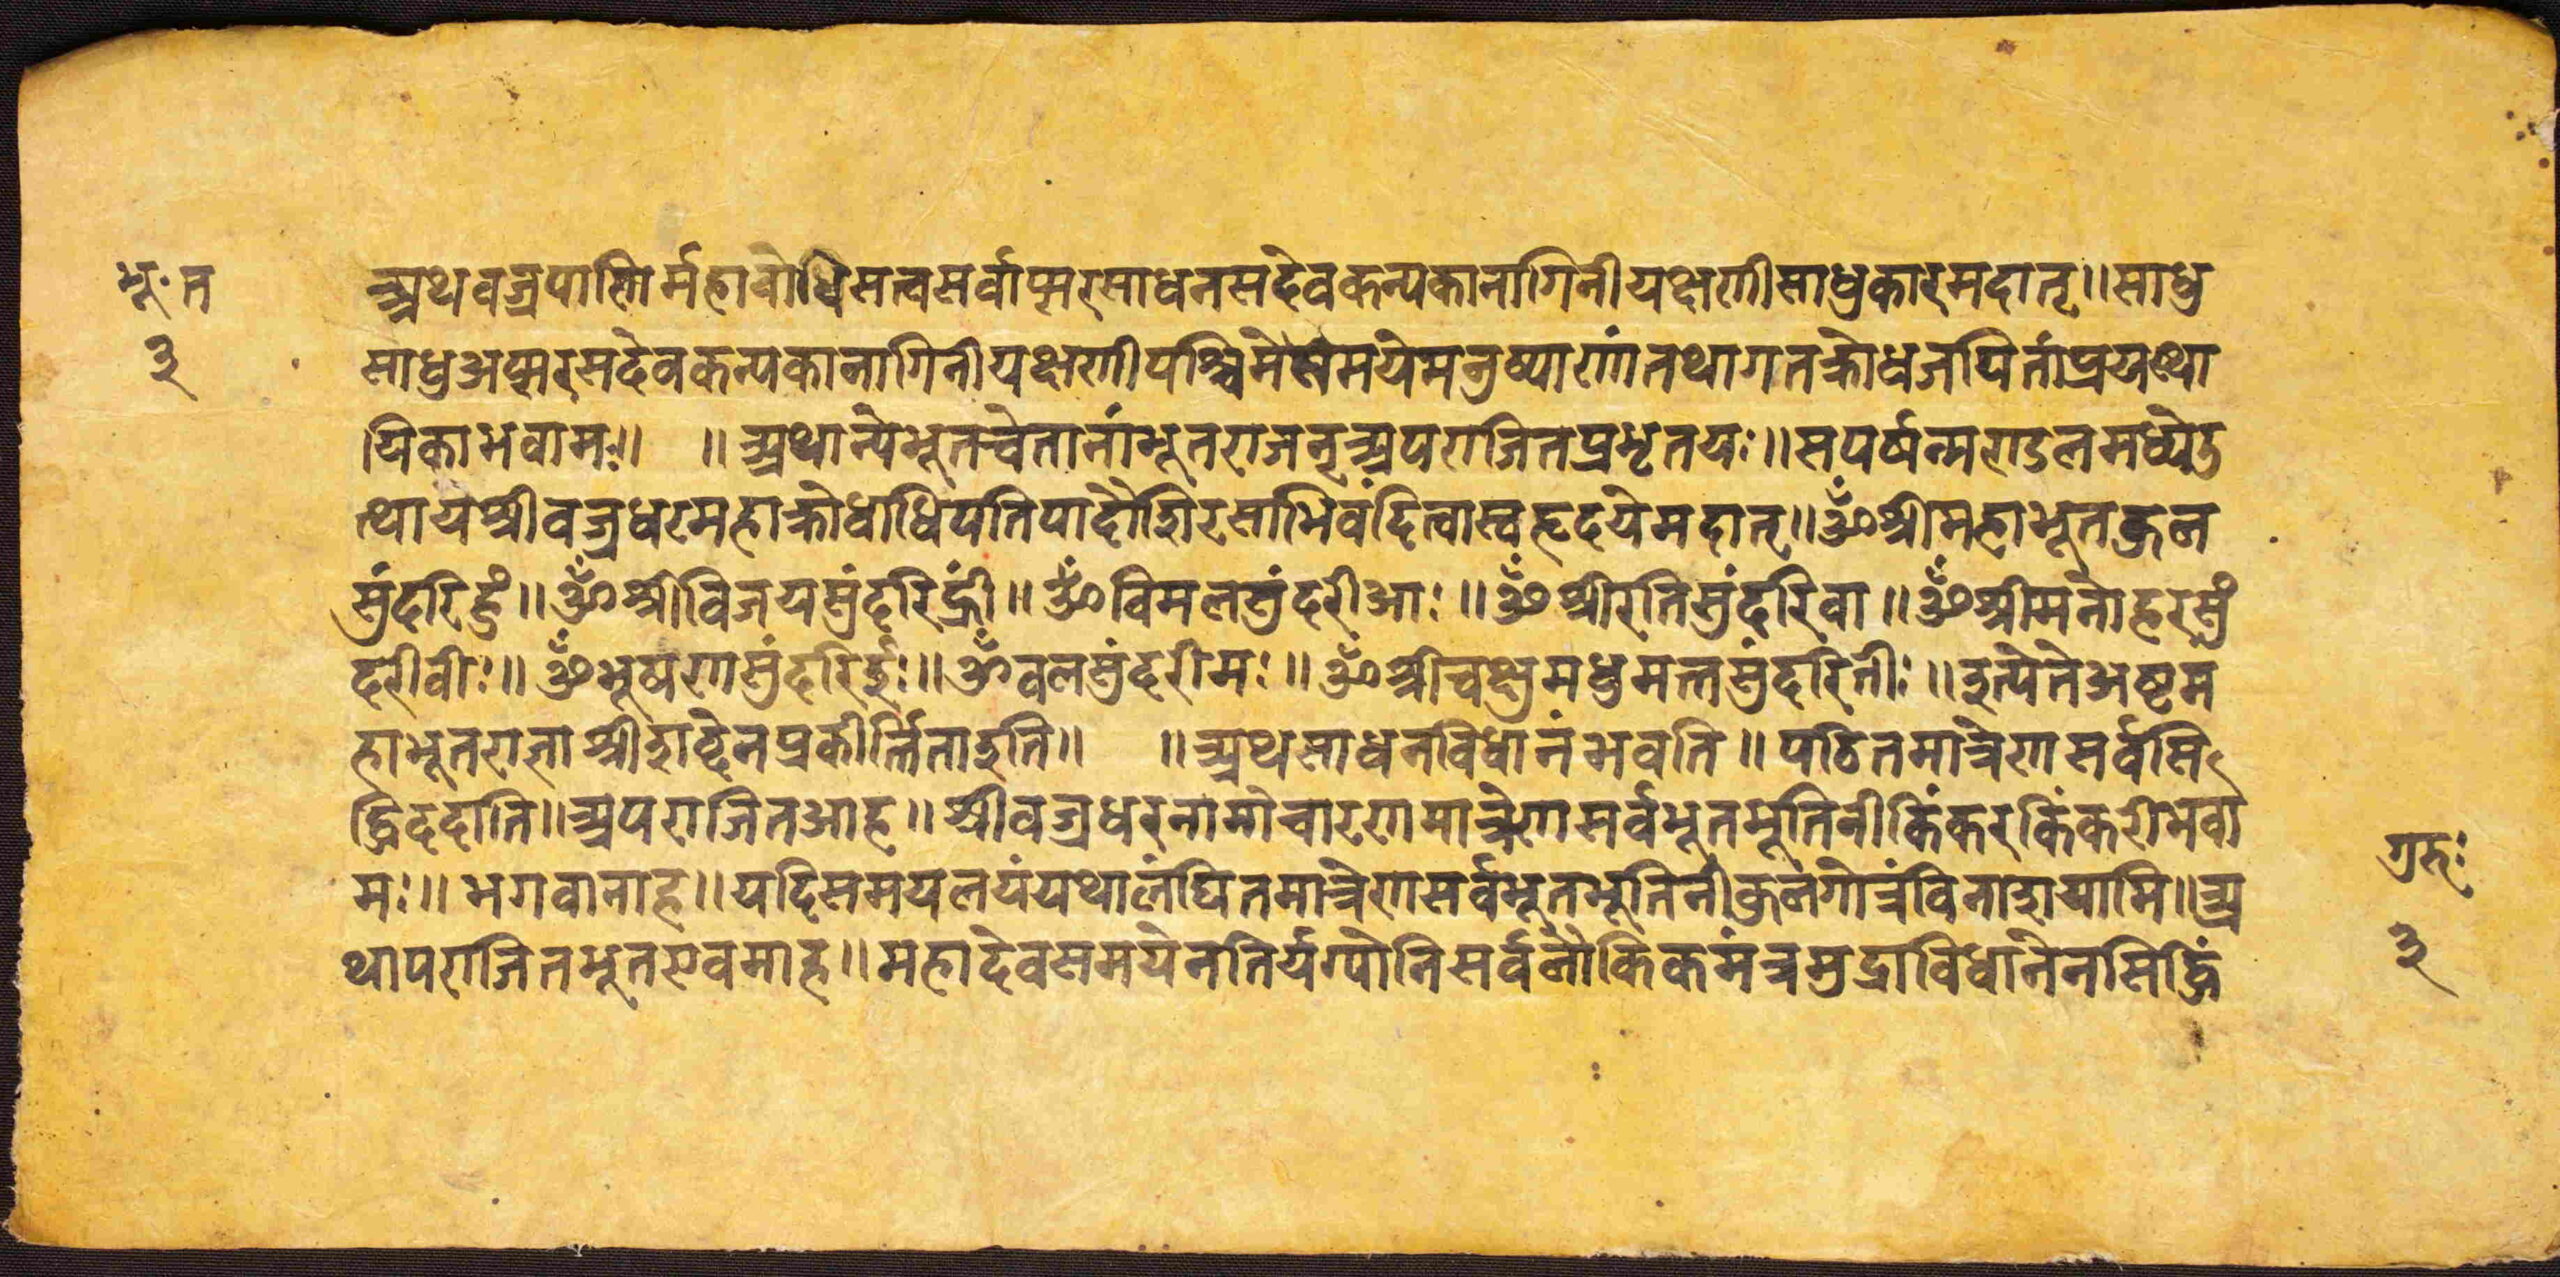 भूः त
३
अथवज्रपाणिर्महाबोधिसत्वसर्वाप्सरसाधनसदेवकन्यकानागिनीयक्षणीसाधुकारमदात्॥साधु
साधुअप्सरसदेवकन्यकानागिनीयक्षणीपश्चिमेसमयेमनुष्याणांतथागतक्रोधजपितां
यिकाभवामः॥ ॥अथान्येभूतश्चेतानांभूतराजन्अपराजितप्रभृतयः॥सपर्षन्मण्डलमध्येउ
त्थायश्रीवज्रधरमहाक्रोधाधिपतिपादौशिरसाभिवंदित्वास्वहृदयेमदात्॥ॐश्रीमहाभूतकुल
सुंदरिहुं॥ॐश्रीविजयसुंदरिह्रीं॥ॐविमलसुंदरीआः॥ॐश्रीरतिसुंदरिवा॥ॐश्रीमनोहरसुं
दरीवीः॥ॐभूषणसुंदरिईः॥ॐवलसुंदरीमः॥ॐश्रीचक्षुमधुमत्तसुंदरितीः॥इत्येतेअष्टम
हाभूतराज्ञाश्रीशठेनप्रकीर्त्तिताइति॥ ॥अथसाधनविधानंभवति॥पठितमात्रेणसर्वसि
द्धिददाति॥अपराजितआह॥श्रीवज्रधरनामोचारणमात्रेणसर्वभूतभूतिनीकिंकरकिंकरीभवा
मः॥भगवानाह॥यदिसमयलयंयथालंघितमात्रेणसर्वभूतभूतिनीकुलगोत्रंविनाशयामि॥अ
थापराजितभूतएवमाह॥महादेवसमयेनतिर्यग्योनिसर्वलौकिकमंत्रमुद्राविधानेनसिद्धिं
गुरुः
३